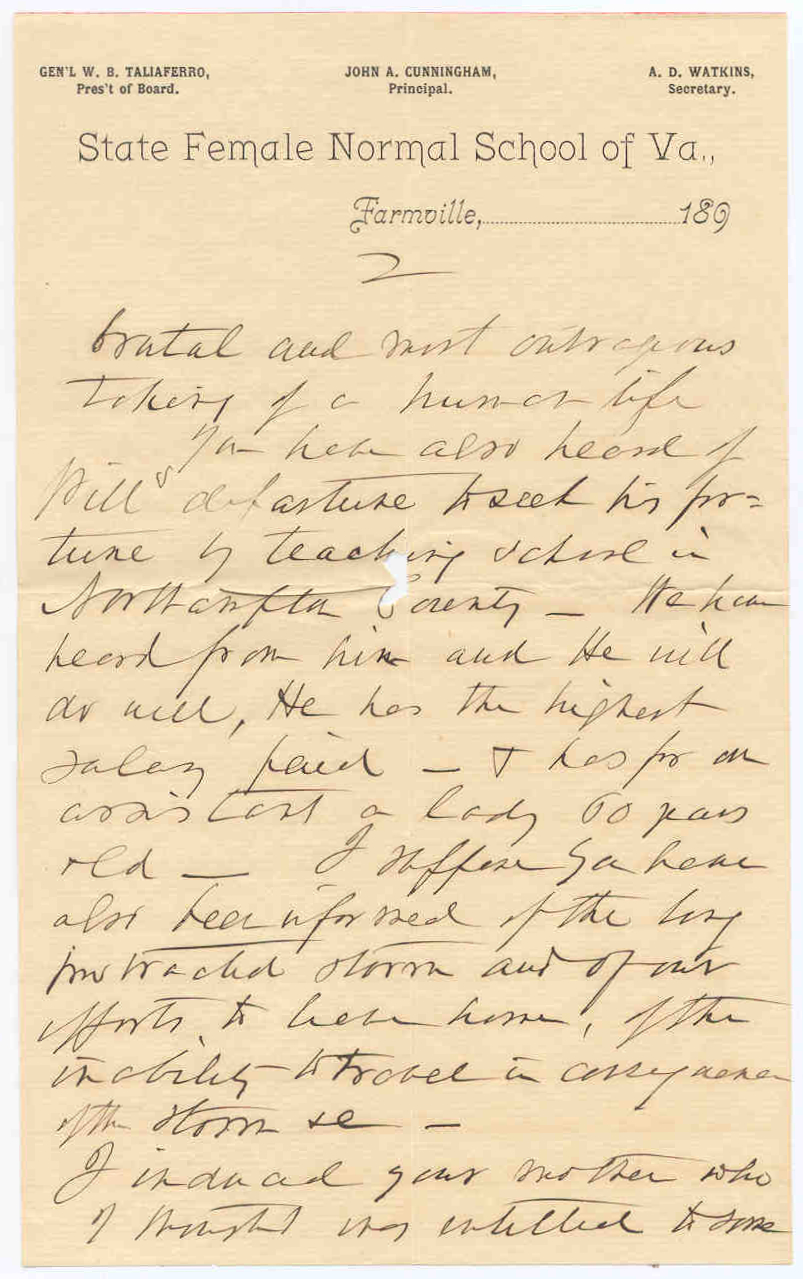 GEN'L W. B. TALIAFERRO,
Pres't of Board.
JOHN A. CUNNINGHAM,
Principal.
A. D. WATKINS,
Secretary.
State Female Normal School of Va.,
Farmville, 189
2
brutal and most outrageous
taking of a human life
You have also heard of
Will's departure to seek his for=
tune by teaching school in
Northampton County — We have
heard from him and He will
do well, He has the highest
salary paid — & has for an
assistant a lady 60 years
old — I suppose you have
also been informed of the long
protracted storm and of our
efforts to leave home, of the
inability to travel in consequence
of the storm &c —
I induced your mother who
I thought was entitled to some